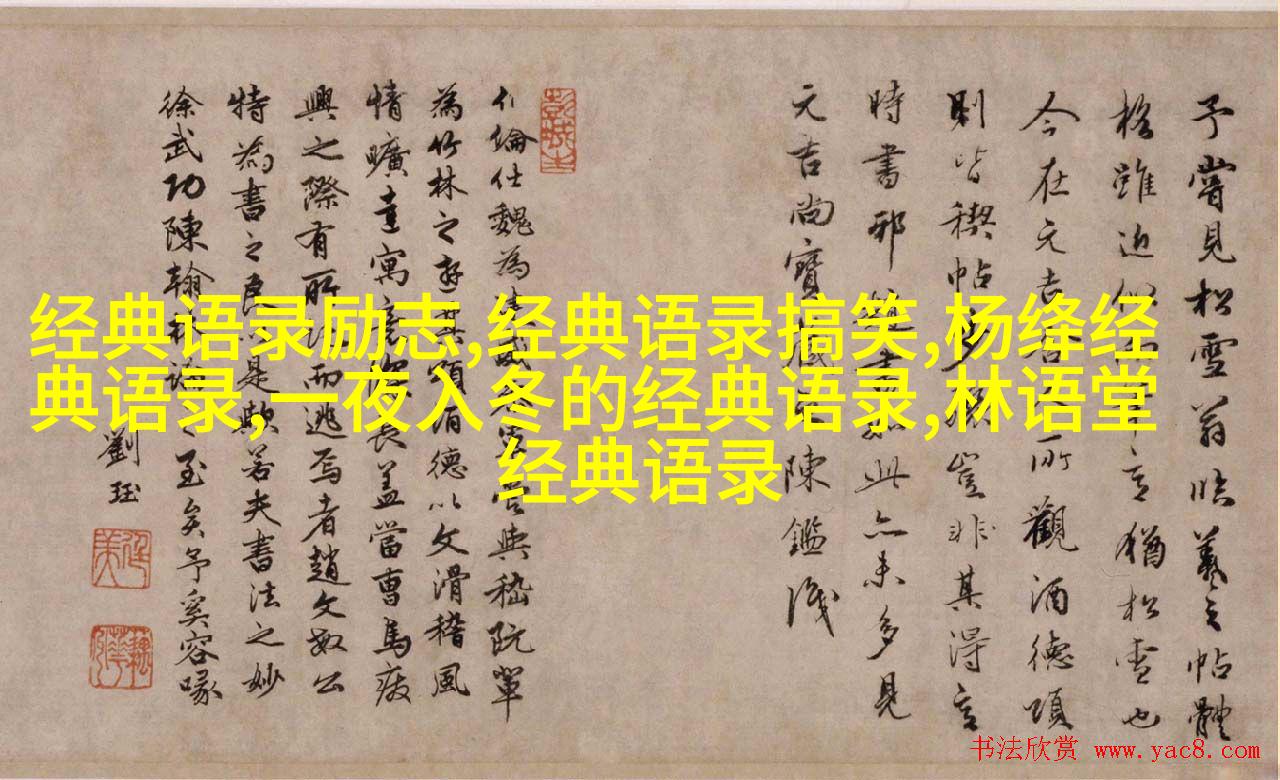 经典语录励志,经典语录搞笑,杨绛经
典语录,一夜入冬的经典语录,林语堂
经典语录
予嘗見松雪翁臨羲之帖體
格雖近 猶松雪也
今在元吉 所觀酒德頌
則皆稧帖 豈非其得意
時書邪 此亦未多見
元吉尚寶藏 陳鑑識
伯倫仕魏為 嘗與嵇阮輩
為竹林之遊 頌酒德以文滑稽風
情曠達寓言 長蓋當曹馬
興之際有所託而逃焉者趙文敏公
特為書之良以是歟若夫書法之妙
徐武功陳翰林論之至矣予奚容喙
劉珏
书法欣赏 www.yac8.com